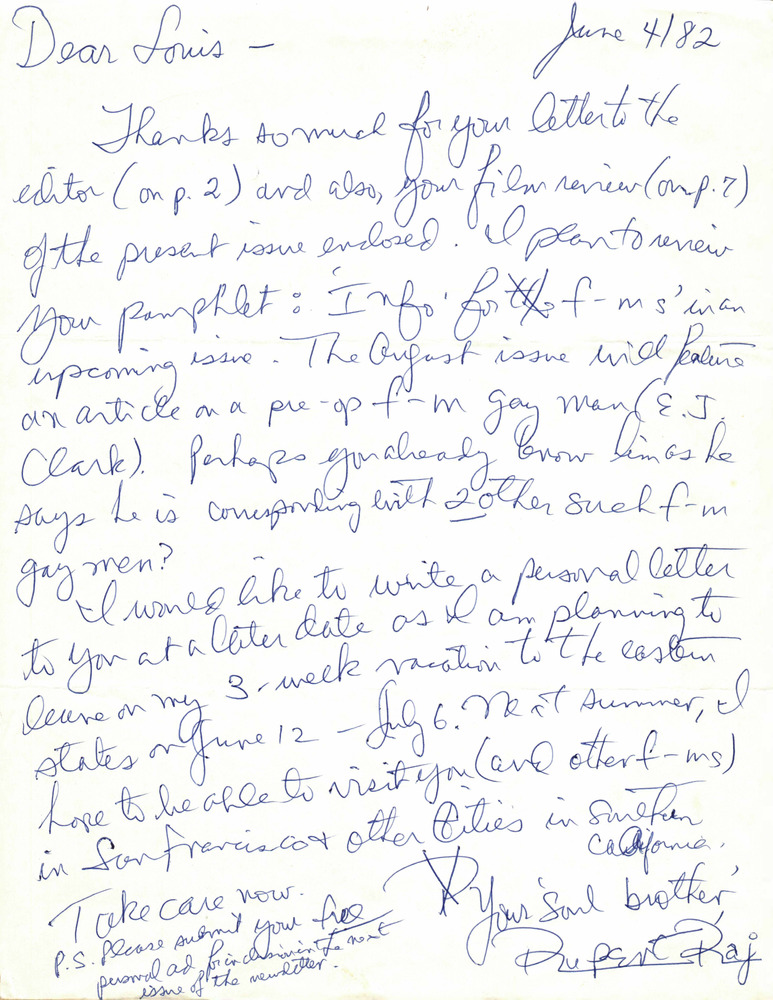 June 4/82
Dear Louis -
Thanks so much for your letter to the
editor (on p. 2) and also, your film review (on p. 7)
of the present issue enclosed. I plan to review
your pamphlet: Info. for f-m s' in an
upcoming issue. The August issue will feature
an article on a pre-op f-m gay man (E. J.
Clark). Perhaps you already know him as he
says he is corresponding with 2 other such f-m
gay men?
I would like to write a personal letter
to you at a later date as I am planning to
leave on my 3-week vacation to the eastern
states on June 12 - July 6. Next summer, I
hope to be able to visit you (and other f-ms)
in San Francisco & other cities in southern
California.
Take care now.
Your 'soul brother',
Rupert Raj
P.S. Please submit your free
personal ad for inclusion in the next
issue of the newsletter.